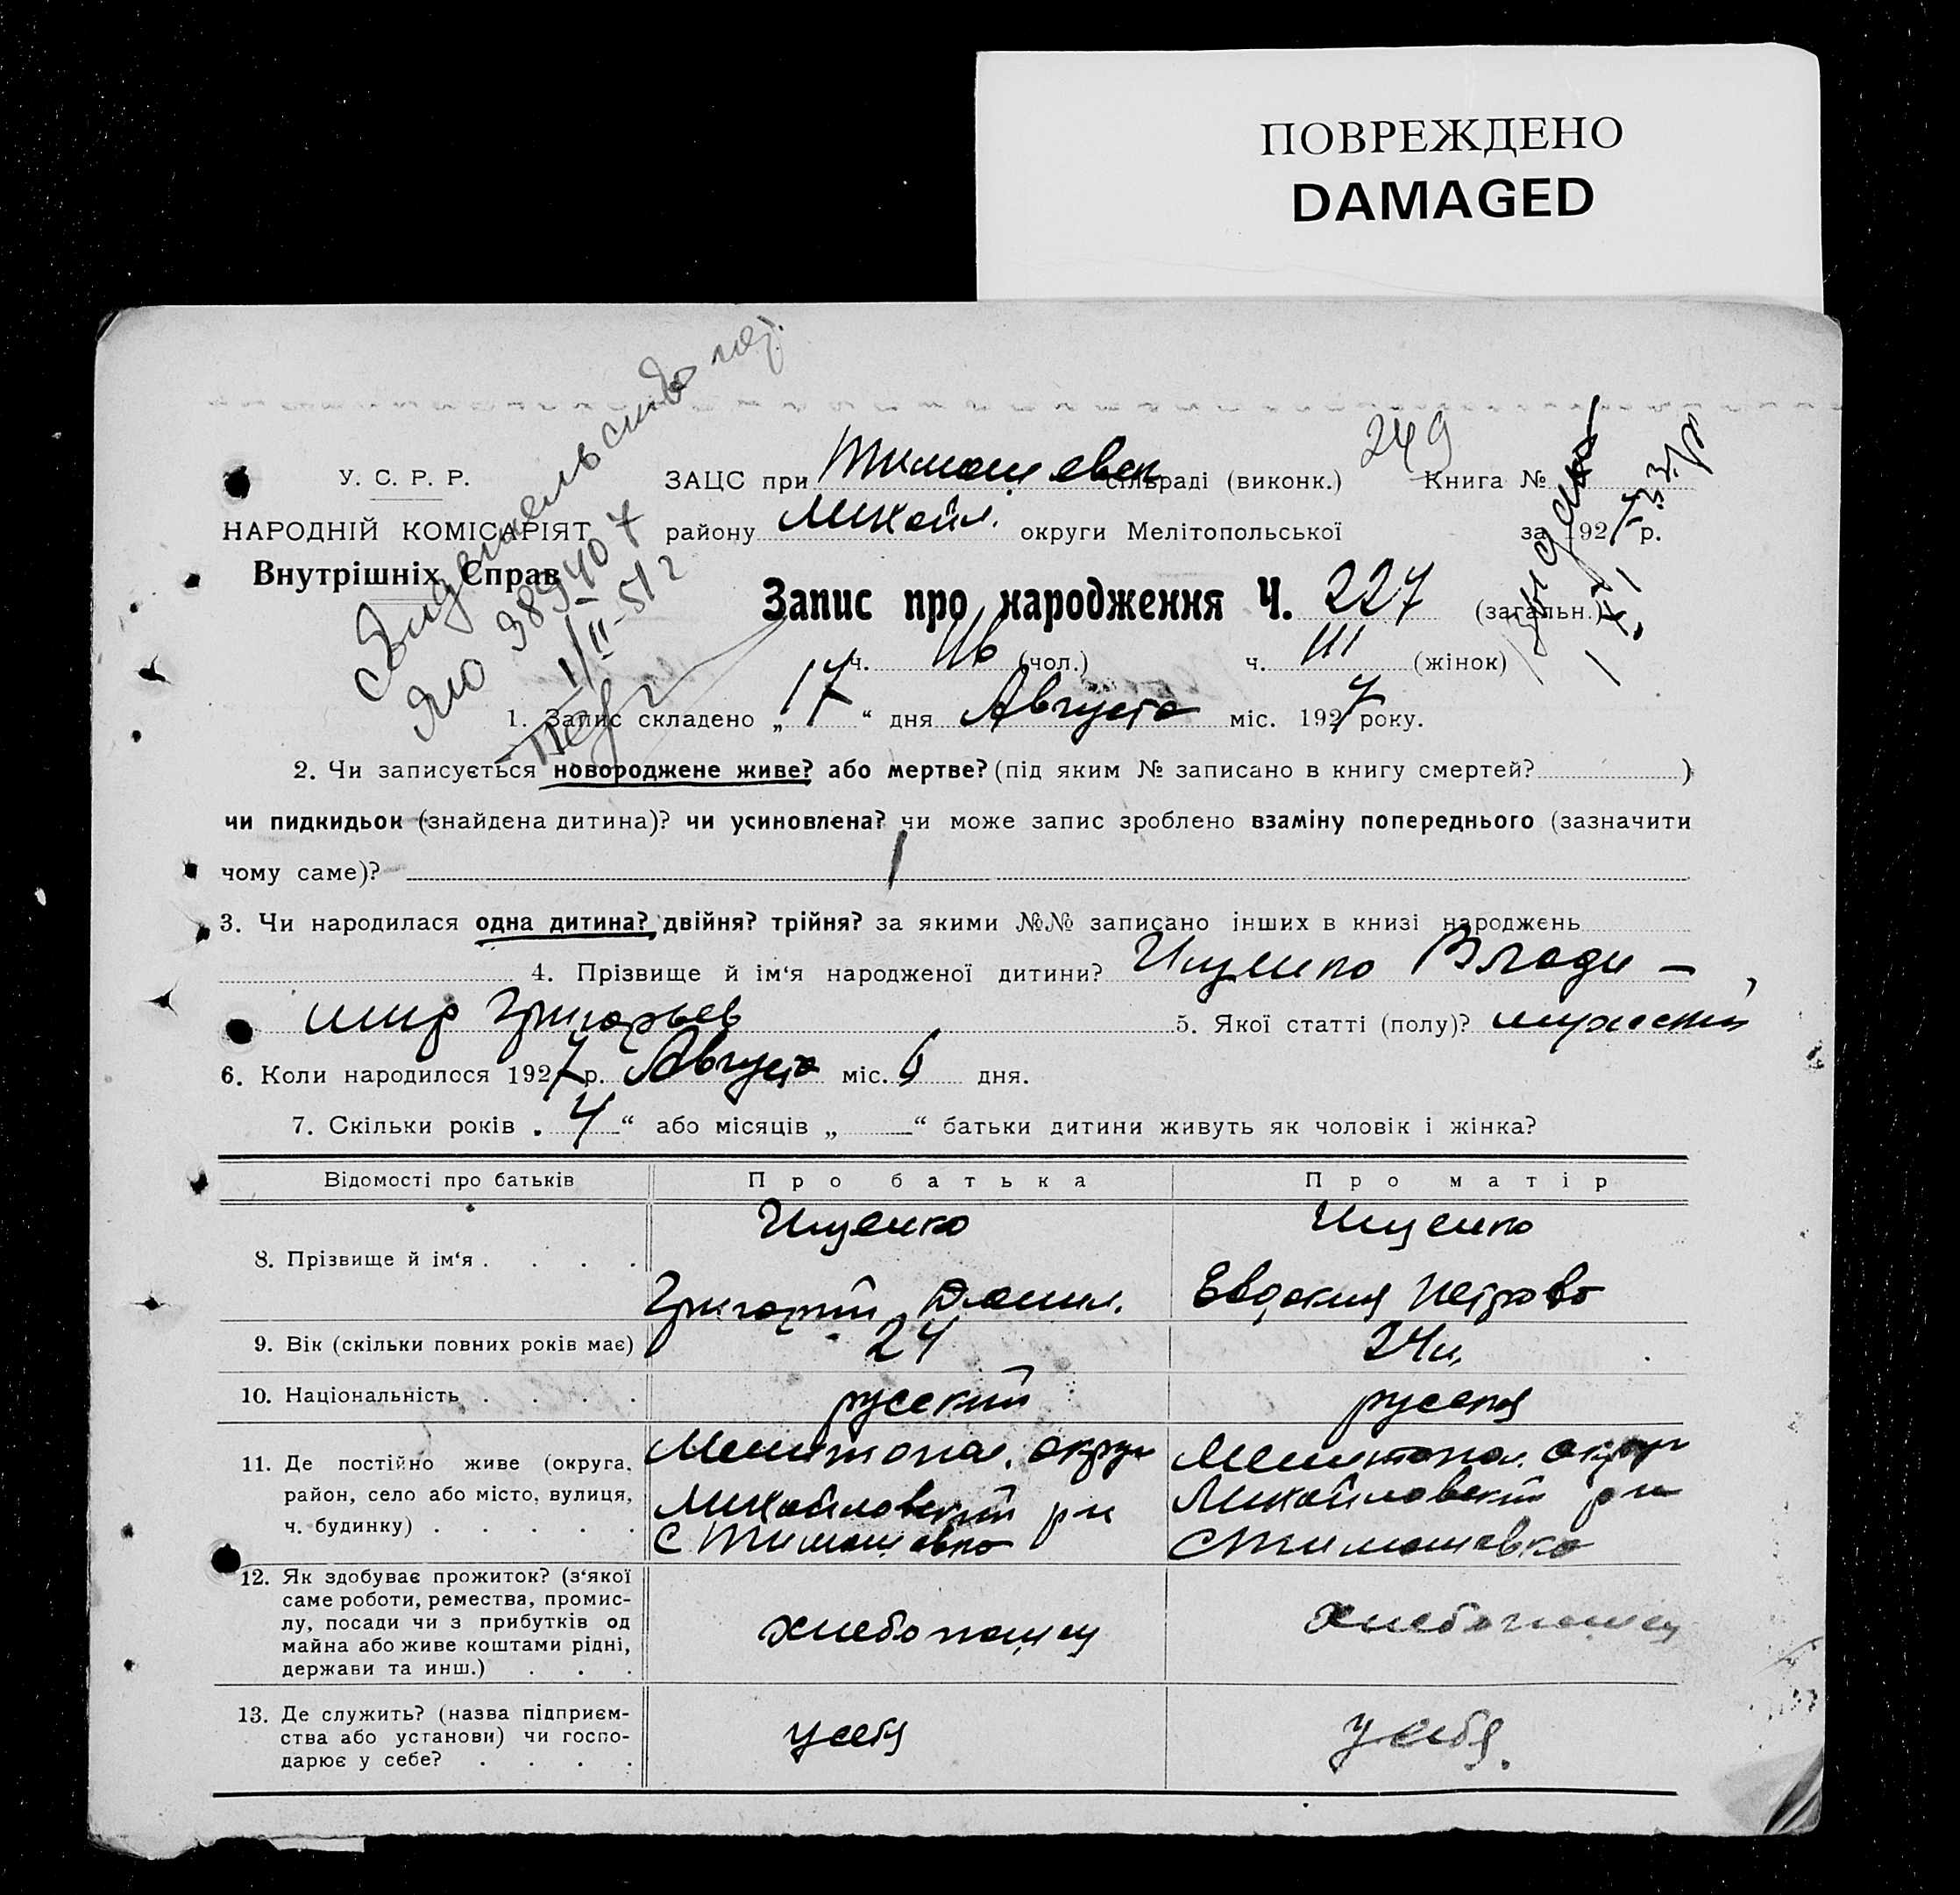 ПОВРЕЖДЕНО
DAMAGED
Свидетельство
ЯЮ
1/II-51 г
249
выдано
У. С. Р. Р.
НАРОДНІЙ КОМІСАРІЯТ
Внутрішніх Справ
ЗАЦС при Тимошевск сільраді (виконк.) Книга №
району Михайл. округи Мелітопольської за 1927 р.
Запис про народження Ч. 227 (загальн.)
ч. 116 (чол.) ч. 111 (жінок)
1. Запис складено „17“ дня Августа міс. 1927 року.
2. Чи записується новороджене живе? або мертве? (під яким № записано в книгу смертей? )
чи пидкидьок (знайдена дитина)? чи усиновлена? чи може запис зроблено взаміну попереднього (зазначити
чому саме)?
3. Чи народилася одна дитина? двійня? трійня? за якими №№ записано інших в книзі народжень
4. Прізвище й ім‘я народженої дитини? Ищенко Влади-
мир Григорьев 5. Якої статті (полу)? мужеский
6. Коли народилося 1927 р. Августа міс. 6 дня.
7. Скільки років „4“ або місяців „ “ батьки дитини живуть як чоловік і жінка?
Відомості про батьків Про батька Про матір
8. Прізвище й ім‘я . . . . Ищенко Ищенко
Григорий Данил. Евдокия Петрово
9. Вік (скільки повних років має) 24 24
10. Національність . . . . русский русская
11. Де постійно живе (округа, район, село або місто, вулиця, ч. будинку) . . . . .
Мелитопол. округ Мелитопол. округ
Михайловский рн Михайловский рн
С Тимошевка С Тимошевка
12. Як здобуває прожиток? (з‘якої
саме роботи, ремества, промис-
лу, посади чи з прибутків од
майна або живе коштами рідні,
держави та инш.) . . .
хлебопашец хлебопашец
13. Де служить? (назва підприєм-
ства або установи) чи госпо-
дарює у себе? . . . .
у себя у себя.